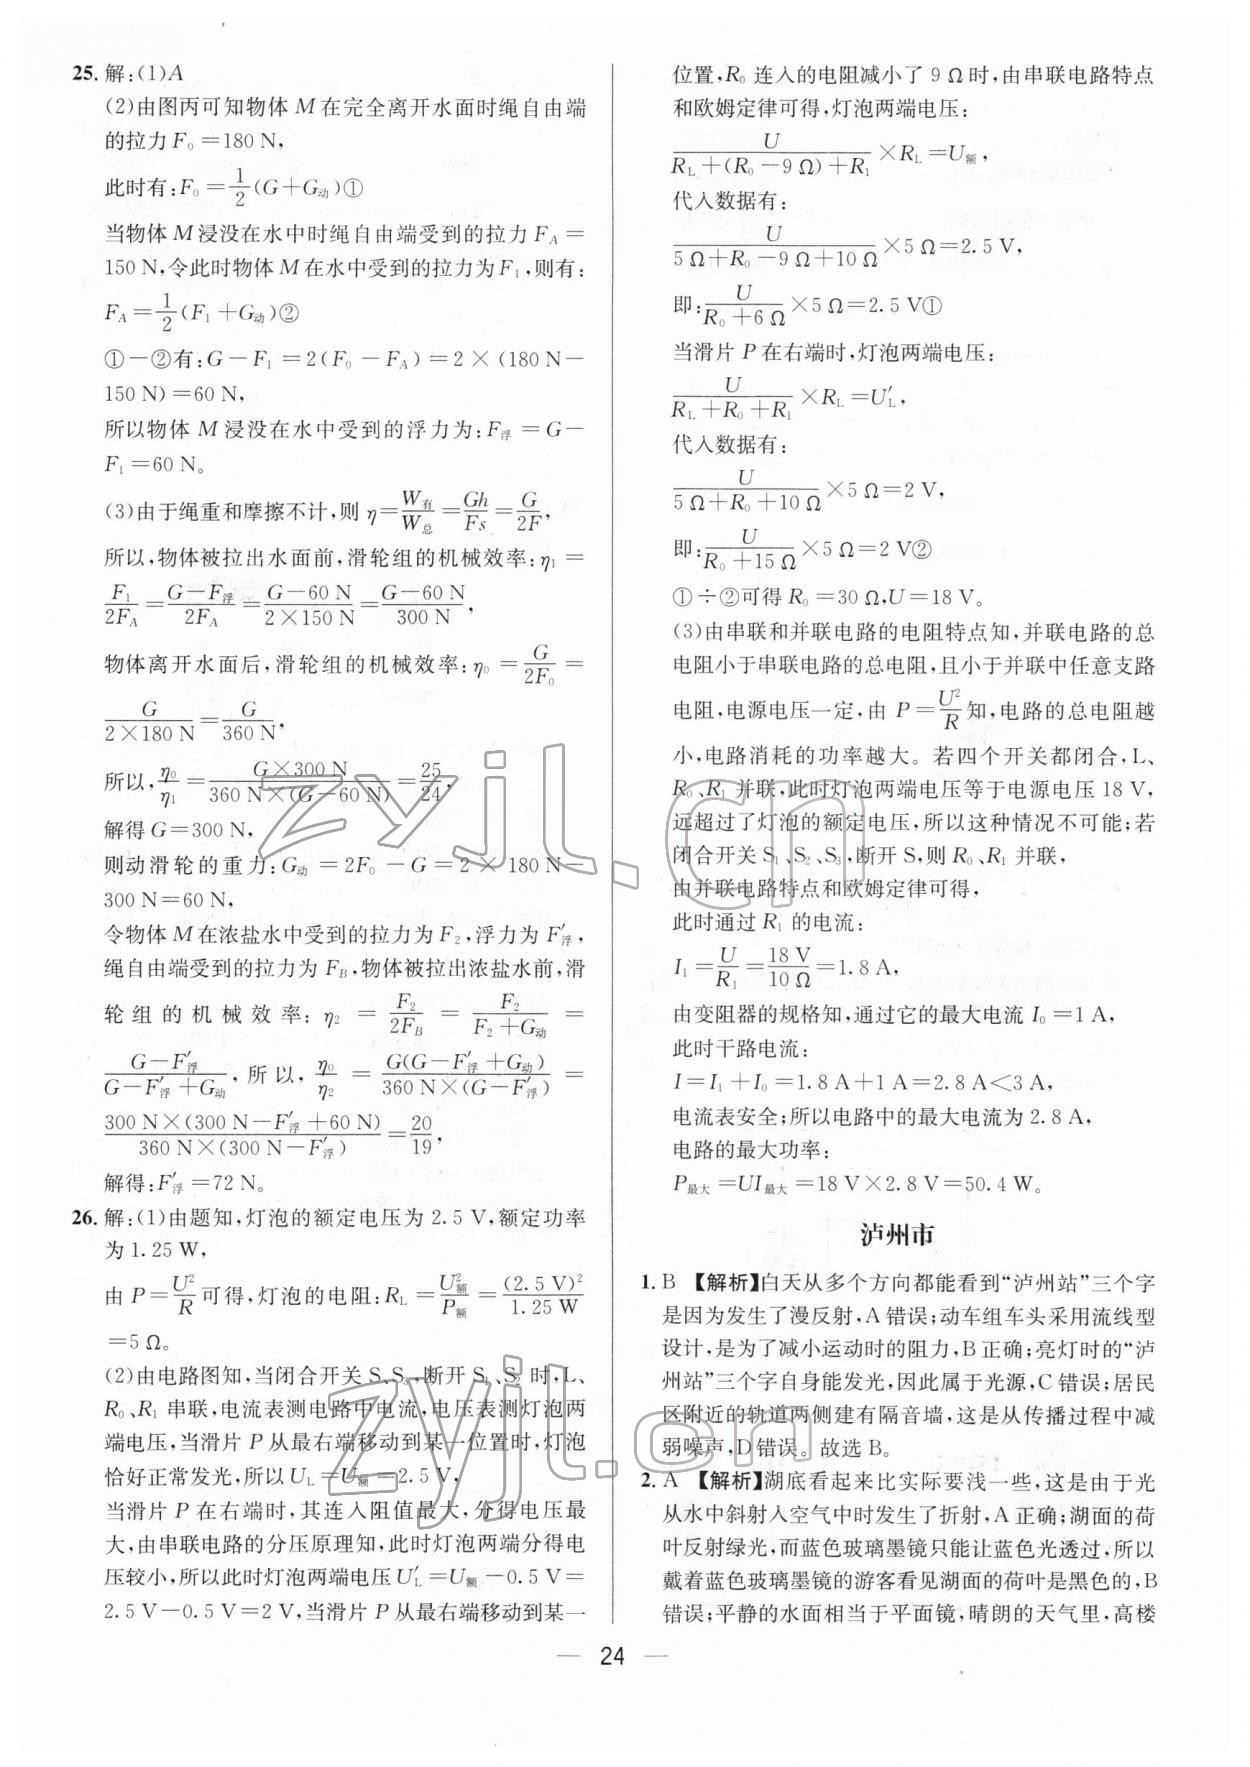 25. 解:(1)A
(2)由图丙可知物体 M 在完全离开水面时绳自由端
的拉力 F₀=180 N,
此时有:F₀=1/2(G+G动)①
当物体 M 浸没在水中时绳自由端受到的拉力 F_A=
150 N,令此时物体 M 在水中受到的拉力为 F₁,则有:
F_A=1/2(F₁+G动)②
①-②有:G-F₁=2(F₀-F_A)=2×(180 N-
150 N)=60 N,
所以物体 M 浸没在水中受到的浮力为:F浮=G-
F₁=60 N。
(3)由于绳重和摩擦不计,则 η=W有/W总=Gh/Fs=G/2F,
所以,物体被拉出水面前,滑轮组的机械效率:η₁=
F₁/2F_A=(G-F浮)/2F_A=(G-60 N)/(2×150 N)=(G-60 N)/300 N,
物体离开水面后,滑轮组的机械效率:η₀=G/2F₀=
G/(2×180 N)=G/360 N,
所以,η₀/η₁=(G×300 N)/(360 N×(G-60 N))=25/24,
解得 G=300 N,
则动滑轮的重力:G动=2F₀-G=2×180 N-
300 N=60 N,
令物体 M 在浓盐水中受到的拉力为 F₂,浮力为 F′浮,
绳自由端受到的拉力为 F_B,物体被拉出浓盐水前,滑
轮组的机械效率:η₂=F₂/2F_B=F₂/(F₂+G动)=
(G-F′浮)/(G-F′浮+G动),所以,η₀/η₂=G(G-F′浮+G动)/(360 N×(G-F′浮))=
(300 N×(300 N-F′浮+60 N))/(360 N×(300 N-F′浮))=20/19,
解得:F′浮=72 N。
26. 解:(1)由题知,灯泡的额定电压为 2.5 V,额定功率
为 1.25 W,
由 P=U²/R 可得,灯泡的电阻:R_L=U额²/P额=(2.5 V)²/1.25 W
=5 Ω。
(2)由电路图知,当闭合开关 S、S₃,断开 S₁、S₂ 时,L、
R₀、R₁ 串联,电流表测电路中电流,电压表测灯泡两
端电压,当滑片 P 从最右端移动到某一位置时,灯泡
恰好正常发光,所以 U_L=U额=2.5 V,
当滑片 P 在右端时,其连入阻值最大,分得电压最
大,由串联电路的分压原理知,此时灯泡两端分得电
压较小,所以此时灯泡两端电压 U′_L=U额-0.5 V=
2.5 V-0.5 V=2 V,当滑片 P 从最右端移动到某一
位置,R₀ 连入的电阻减小了 9 Ω时,由串联电路特点
和欧姆定律可得,灯泡两端电压:
U/(R_L+(R₀-9 Ω)+R₁)×R_L=U额,
代入数据有:
U/(5 Ω+R₀-9 Ω+10 Ω)×5 Ω=2.5 V,
即:U/(R₀+6 Ω)×5 Ω=2.5 V①
当滑片 P 在右端时,灯泡两端电压:
U/(R_L+R₀+R₁)×R_L=U′_L,
代入数据有:
U/(5 Ω+R₀+10 Ω)×5 Ω=2 V,
即:U/(R₀+15 Ω)×5 Ω=2 V②
①÷②可得 R₀=30 Ω,U=18 V。
(3)由串联和并联电路的电阻特点知,并联电路的总
电阻小于串联电路的总电阻,且小于并联中任意支路
电阻,电源电压一定,由 P=U²/R知,电路的总电阻越
小,电路消耗的功率越大。若四个开关都闭合,L、
R₀、R₁ 并联,此时灯泡两端电压等于电源电压 18 V,
远超过了灯泡的额定电压,所以这种情况不可能;若
闭合开关 S₁、S₂、S₃,断开 S,则 R₀、R₁ 并联,
由并联电路特点和欧姆定律可得,
此时通过 R₁ 的电流:
I₁=U/R₁=18 V/10 Ω=1.8 A,
由变阻器的规格知,通过它的最大电流 I₀=1 A,
此时干路电流:
I=I₁+I₀=1.8 A+1 A=2.8 A<3 A,
电流表安全;所以电路中的最大电流为 2.8 A,
电路的最大功率:
P最大=UI最大=18 V×2.8 V=50.4 W。
泸州市
1. B 【解析】白天从多个方向都能看到“泸州站”三个字
是因为发生了漫反射,A 错误;动车组车头采用流线型
设计,是为了减小运动时的阻力,B 正确;亮灯时的“泸
州站”三个字自身能发光,因此属于光源,C 错误;居民
区附近的轨道两侧建有隔音墙,这是从传播过程中减
弱噪声,D 错误。故选 B。
2. A 【解析】湖底看起来比实际要浅一些,这是由于光
从水中斜射入空气中时发生了折射,A 正确;湖面的荷
叶反射绿光,而蓝色玻璃墨镜只能让蓝色光透过,所以
戴着蓝色玻璃墨镜的游客看见湖面的荷叶是黑色的,B
错误;平静的水面相当于平面镜,晴朗的天气里,高楼
— 24 —
zyjl.cn
zyjl.cn